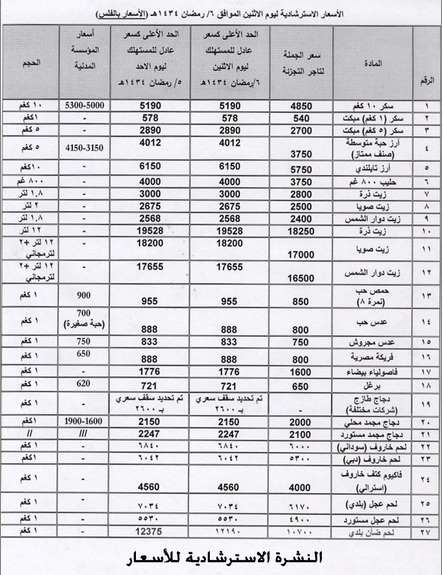 الأسعار الاسترشادية ليوم الاثنين الموافق ٦/ رمضان ١٤٣٤هـ (الأسعار بالفلس)
الرقم المادة سعر الجملة لتاجر التجزئة الحد الأعلى كسعر عادل للمستهلك ليوم الاثنين ٦/رمضان ١٤٣٤هـ الحد الأعلى كسعر عادل للمستهلك ليوم الاحد ٥/ رمضان ١٤٣٤هـ أسعار المؤسسة المدنية الحجم
١ سكر ١٠ كغم 4850 5190 5190 5300-5000 ١٠ كغم
٢ سكر (١ كغم) مبكت 540 578 578 - ١كغم
٣ سكر (٥ كغم) مبكت 2700 2890 2890 - ٥ كغم
٤ أرز حبة متوسطة (صنف ممتاز) 3750 4012 4012 4150-3150 ٥ كغم
٥ أرز تايلندي 5750 6150 6150 - ١٠كغم
٦ حليب ٨٠٠ غم 3750 4000 4000 - ٨٠٠ غم
٧ زيت ذرة 2800 3000 3000 - ١,٨ لتر
٨ زيت صويا 2500 2675 2675 - ٢ لتر
٩ زيت دوار الشمس 2400 2568 2568 - ١,٨ لتر
١٠ زيت ذرة 18250 19528 19528 - ١٢ لتر
١١ زيت صويا 17000 18200 18200 - ١٢ لتر +٢ لترمجاني
١٢ زيت دوار الشمس 16500 17655 17655 - ١٢ لتر +٢ لترمجاني
١٣ حمص حب (نمرة ٨) 850 955 955 900 ١ كغم
١٤ عدس حب 800 888 888 700 (حبة صغيرة) ١ كغم
١٥ عدس مجروش 750 833 833 750 ١ كغم
١٦ فريكة مصرية 800 888 888 650 ١ كغم
١٧ فاصولياء بيضاء 1600 1776 1776 - ١ كغم
١٨ برغل 650 721 721 620 ١ كغم
١٩ دجاج طازج (شركات مختلفة) - تم تحديد سقف سعري بـ ٢٦٠٠ تم تحديد سقف سعري بـ ٢٦٠٠ - ١ كغم
٢٠ دجاج مجمد محلي 2000 2150 2150 1900-1600 ١كغم
٢١ دجاج مجمد مستورد 2100 2247 2247 /// //
٢٢ لحم خاروف (سوداني) ٦٠٠٠ ٦٨٤٠ ٦٨٤٠ - ١كغم
٢٣ لحم خاروف (دبي) ٥٣٠٠ ٦٠٤٢ ٦٠٤٢ - ١كغم
٢٤ فاكيوم كتف خاروف (استرالي) 4000 4560 4560 - ١ كغم
٢٥ لحم عجل (بلدي) ٦١٧٠ ٧٠٣٤ ٧٠٣٤ - ١ كغم
٢٦ لحم عجل مستورد ٤٩٠٠ ٥٥٣٠ ٥٥٣٠ - ١ كغم
٢٧ لحم ضأن بلدي ١٠٧٠٠ ١٢١٩٠ 12375 - ١ كغم
النشرة الاسترشادية للأسعار